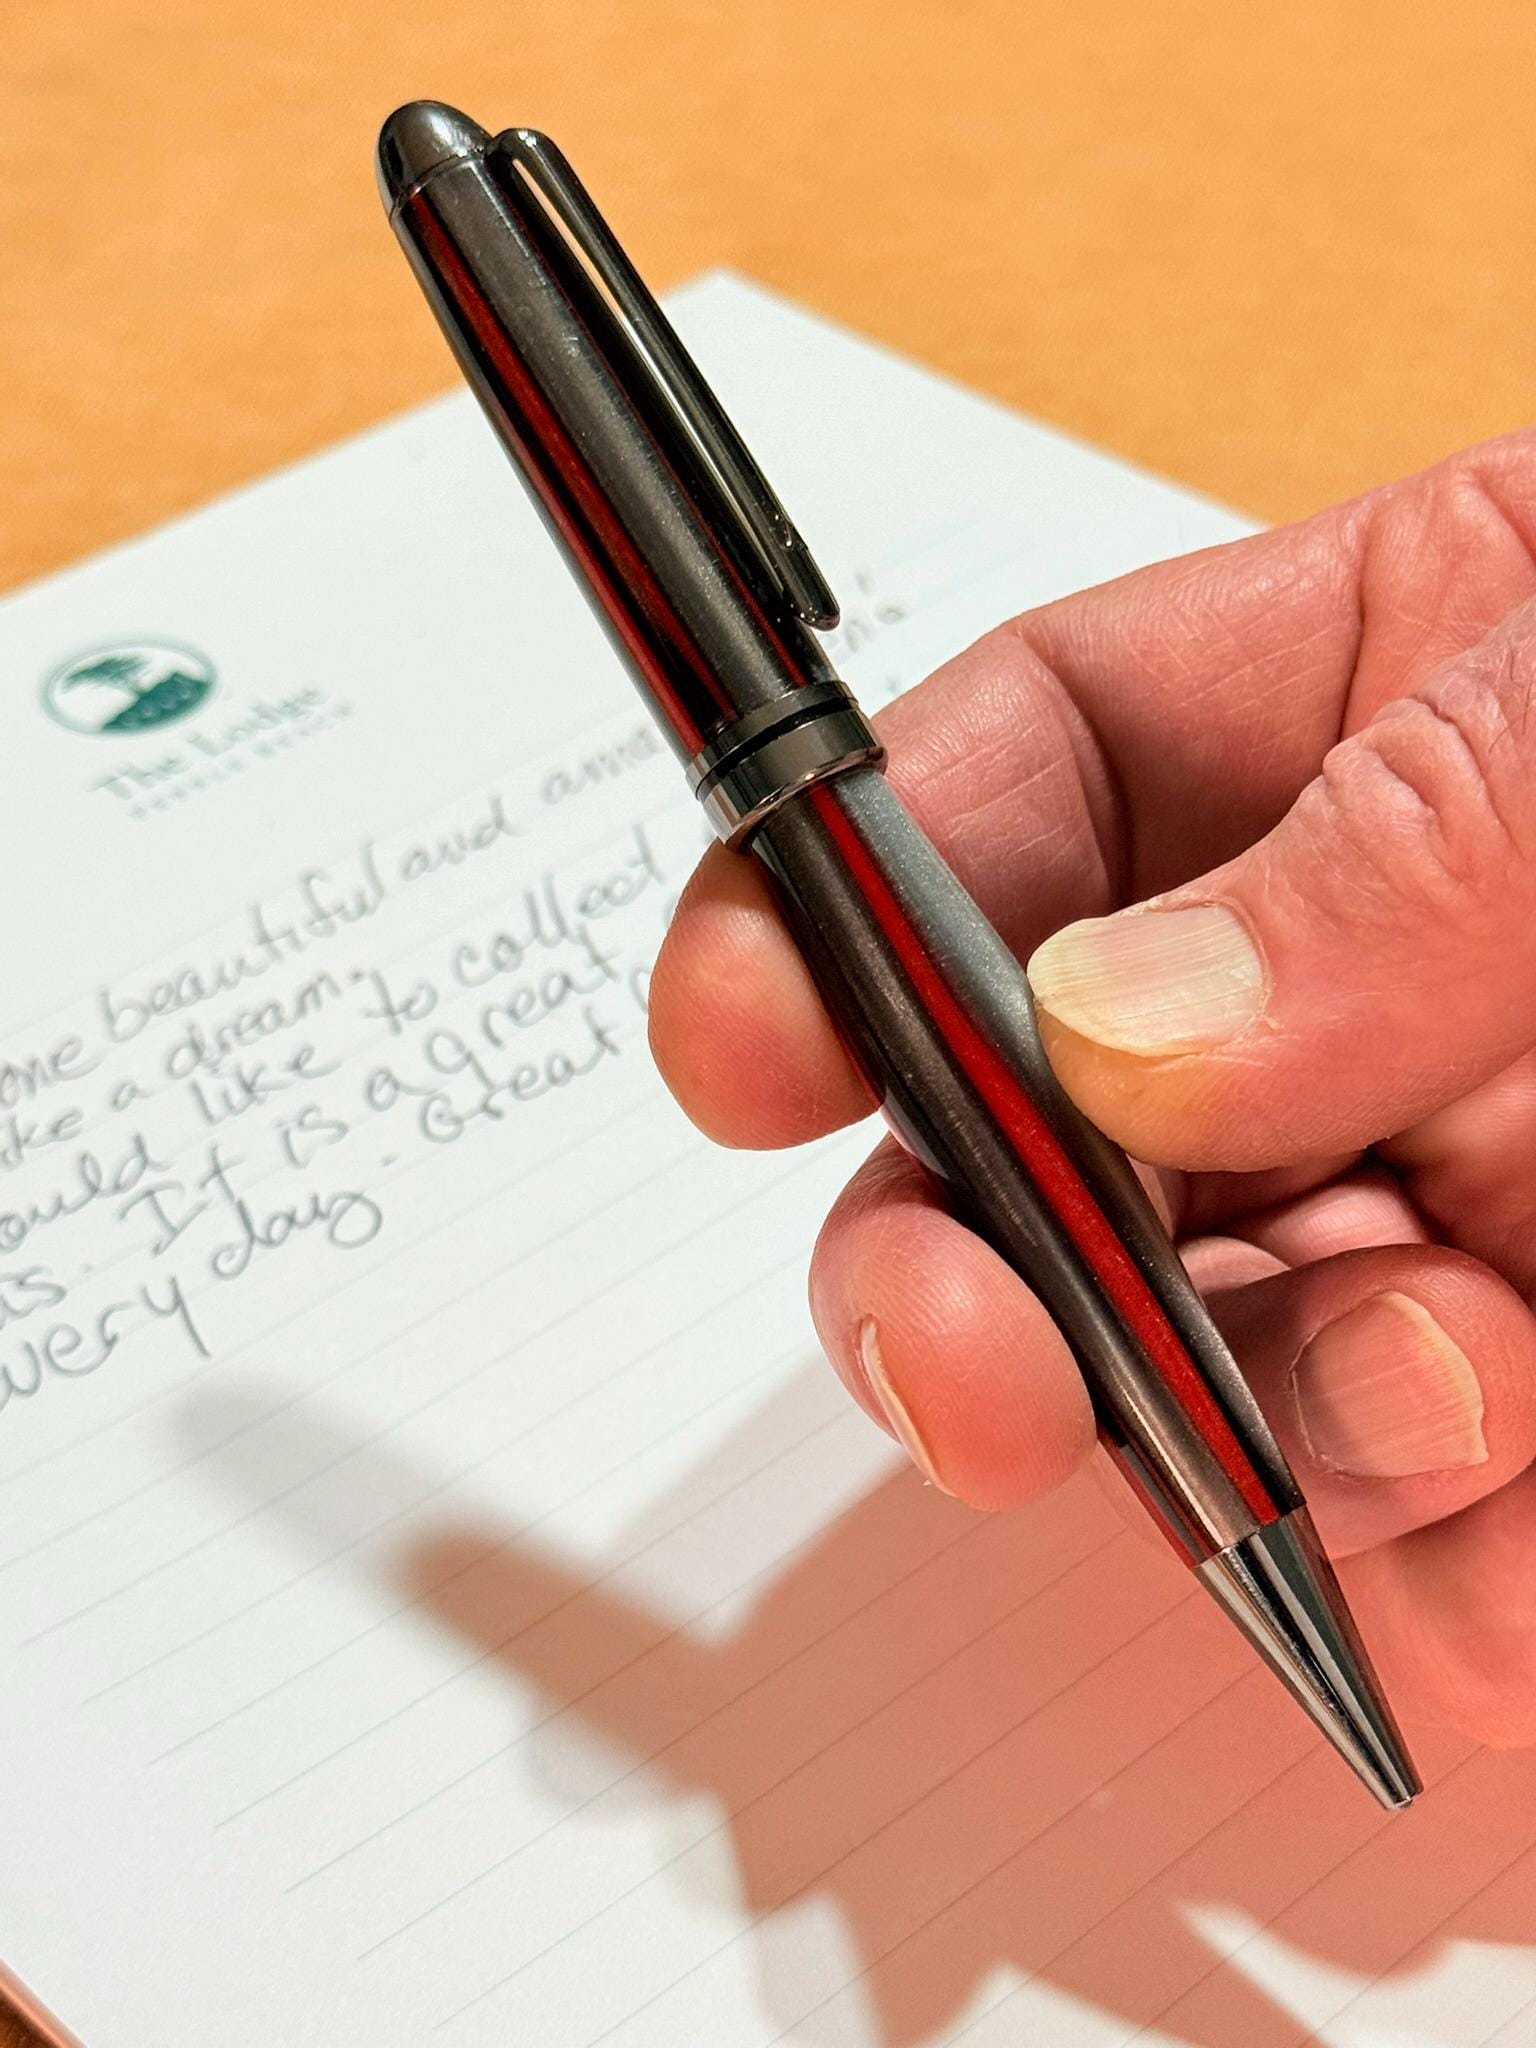 The Lodge
PEBBLE BEACH
one beautiful and ama
ike a dream.
ould like to collect
as. It is a great
every day. Great